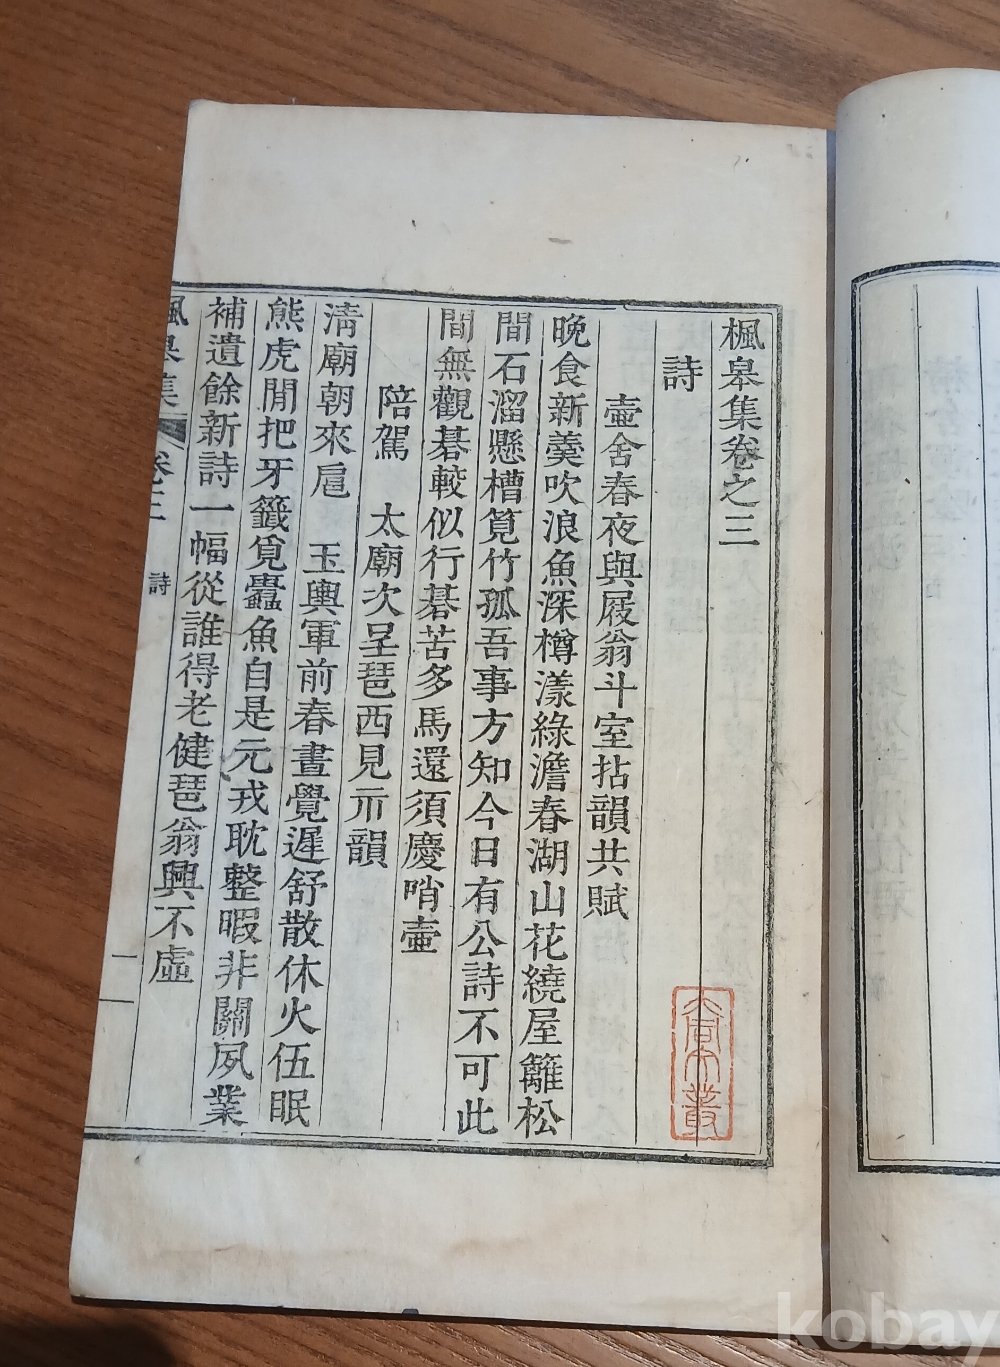 楓皋集卷之三
詩
壺舍春夜與屐翁斗室拈韻共賦
晚食新羹吹浪魚深樽漾綠澹春湖山花繞屋籬松
間石溜懸槽筧竹孤吾事方知今日有公詩不可此
間無觀碁較似行碁苦多馬還須慶哨壷
陪駕 太廟次呈琶西見示韻
淸廟朝來扈 玉輿軍前春晝覺遲舒散休火伍眠
熊虎閒把牙籤覓蠹魚自是元戎耽整暇非關夙業
補遺餘新詩一幅從誰得老健琶翁興不虛
楓皋集 卷三 詩 一
kobay